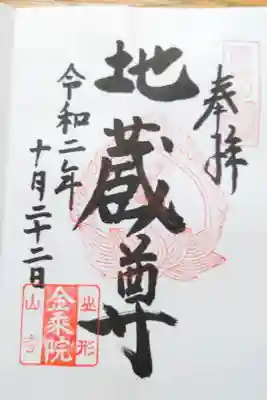 奉拝
地蔵尊
令和二年
十月二十二日
出形
金乘院
山寺